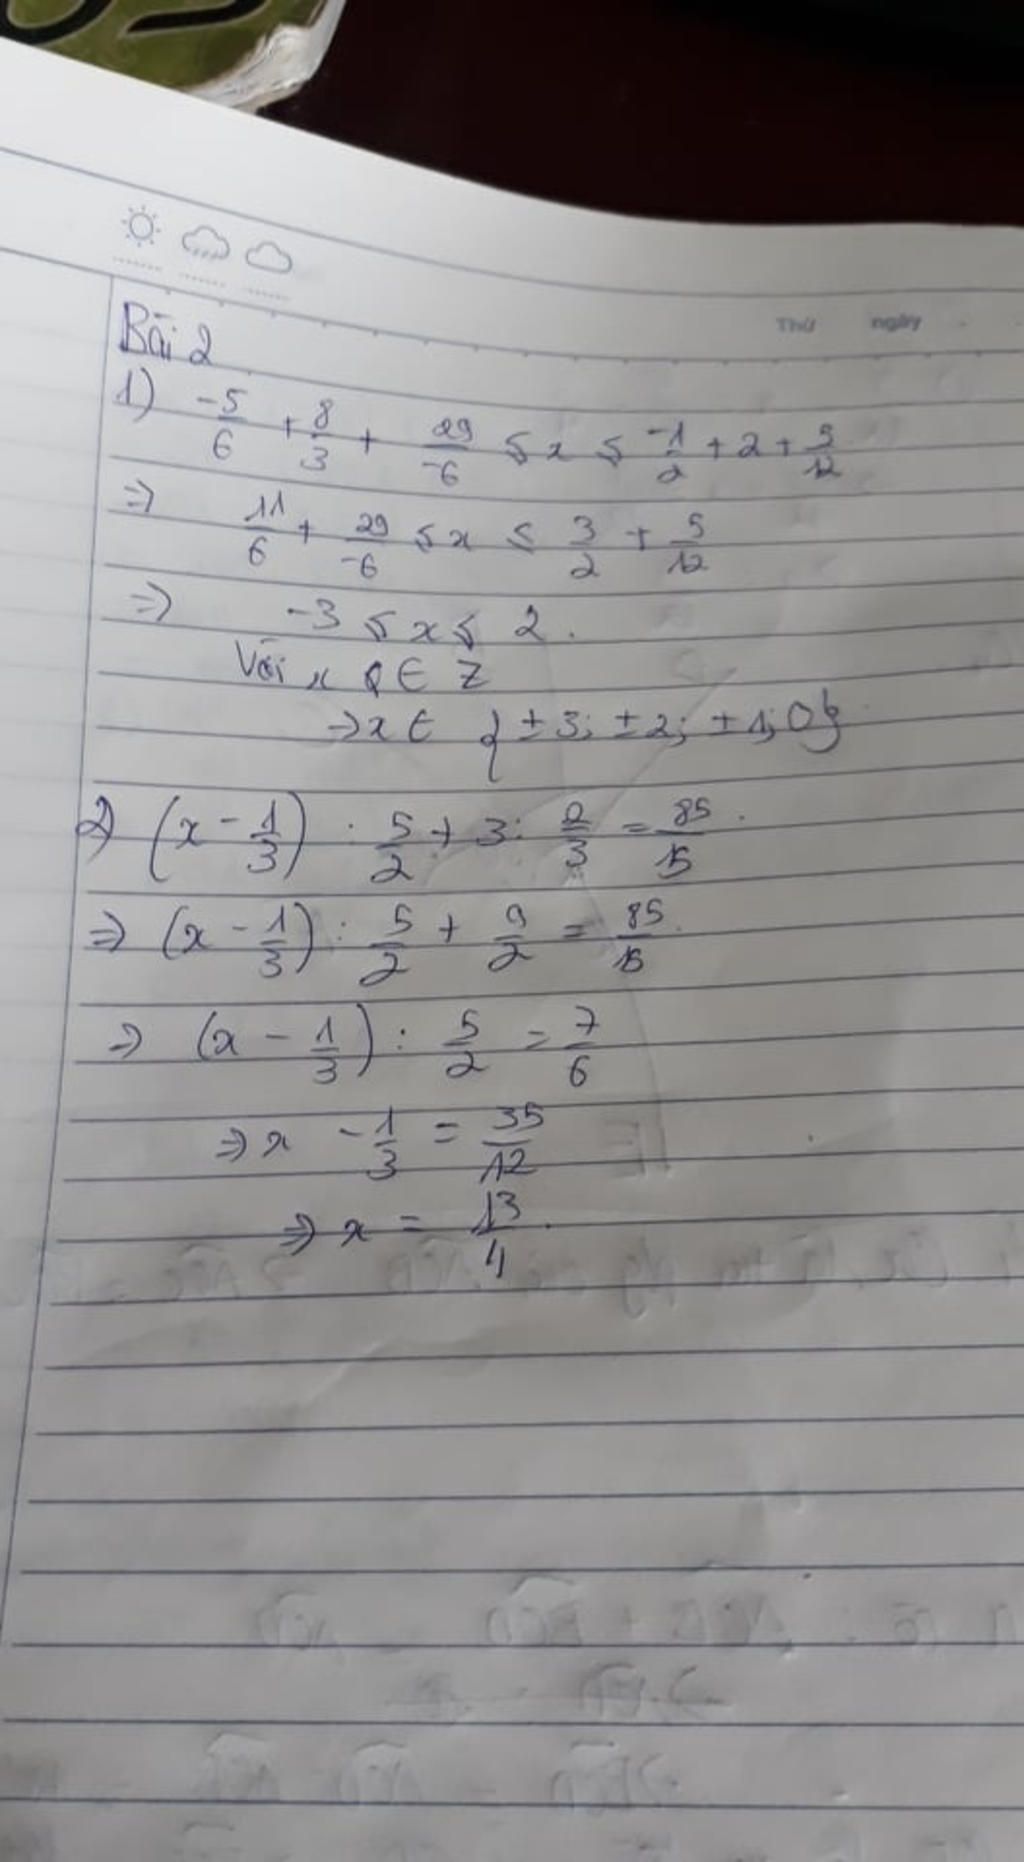 Thứ ngày
Bài 2
1) -5/6 + 8/3 + 29/-6 ≤ x ≤ -1/2 + 2 + 5/12
=> 11/6 + 29/-6 ≤ x ≤ 3/2 + 5/12
=> -3 ≤ x ≤ 2.
Với x ∈ Z
=> x ∈ { ±3; ±2; ±1; 0}
2) (x - 1/3) : 5/2 + 3 : 2/3 = 85/15.
=> (x - 1/3) : 5/2 + 9/2 = 85/15.
=> (x - 1/3) : 5/2 = 7/6
=> x - 1/3 = 35/12
=> x = 13/4.